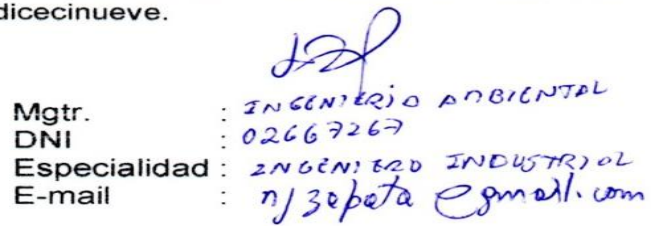 dicecinueve.
Mgtr. : INGENIERIO AMBIENTAL
DNI : 02667267
Especialidad : INGENIERO INDUSTRIAL
E-mail : njzapata @gmail.com